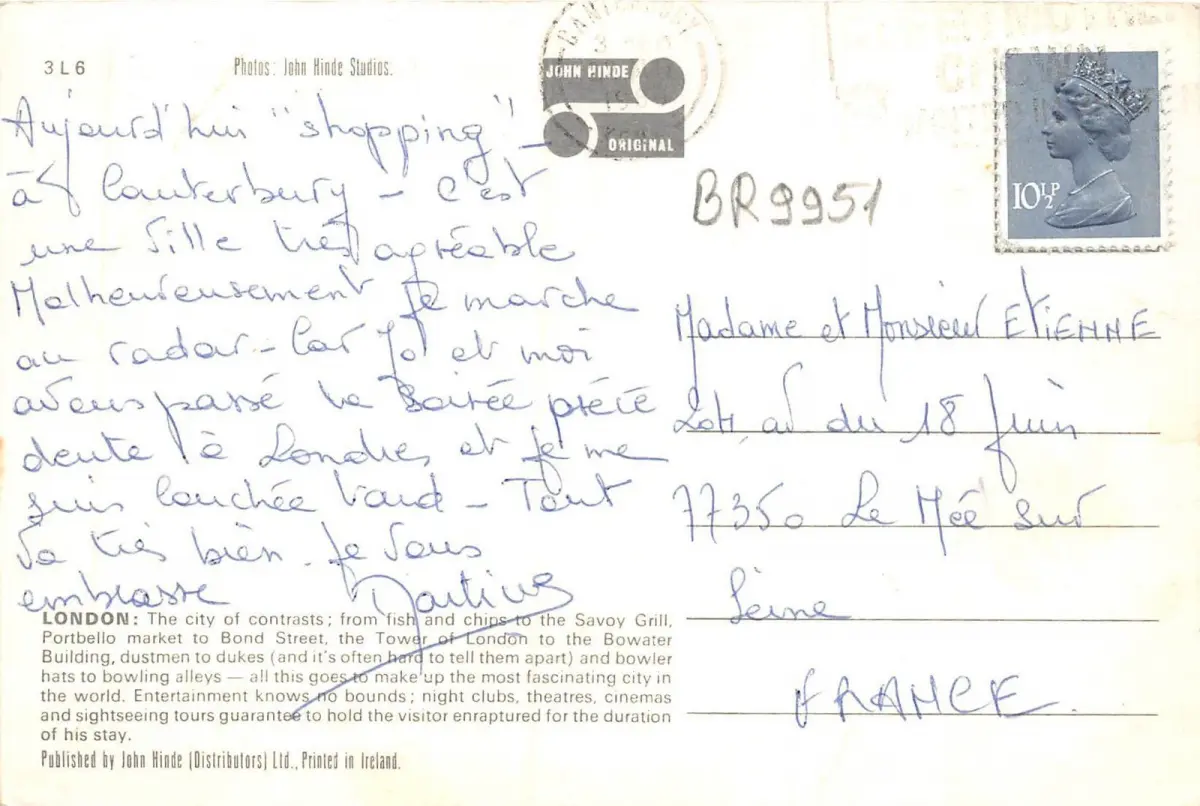 3L6
Photos: John Hinde Studios.
CANTERBURY
JOHN HINDE
ORIGINAL
10½P
BR9951
Aujourd'hui "shopping" -
à Canterbury - c'est
une ville très agréable
Malheureusement je marche
au radar - Car Jo et moi
avons passé la soirée précé
dente à Londres et je me
suis couchée tard - Tout
va très bien. Je vous
embrasse Martine
Madame et Monsieur ETIENNE
204 av du 18 juin
77350 Le Mée sur
Seine
FRANCE.
LONDON: The city of contrasts; from fish and chips to the Savoy Grill,
Portbello market to Bond Street, the Tower of London to the Bowater
Building, dustmen to dukes (and it's often hard to tell them apart) and bowler
hats to bowling alleys — all this goes to make up the most fascinating city in
the world. Entertainment knows no bounds; night clubs, theatres, cinemas
and sightseeing tours guarantee to hold the visitor enraptured for the duration
of his stay.
Published by John Hinde (Distributors) Ltd., Printed in Ireland.